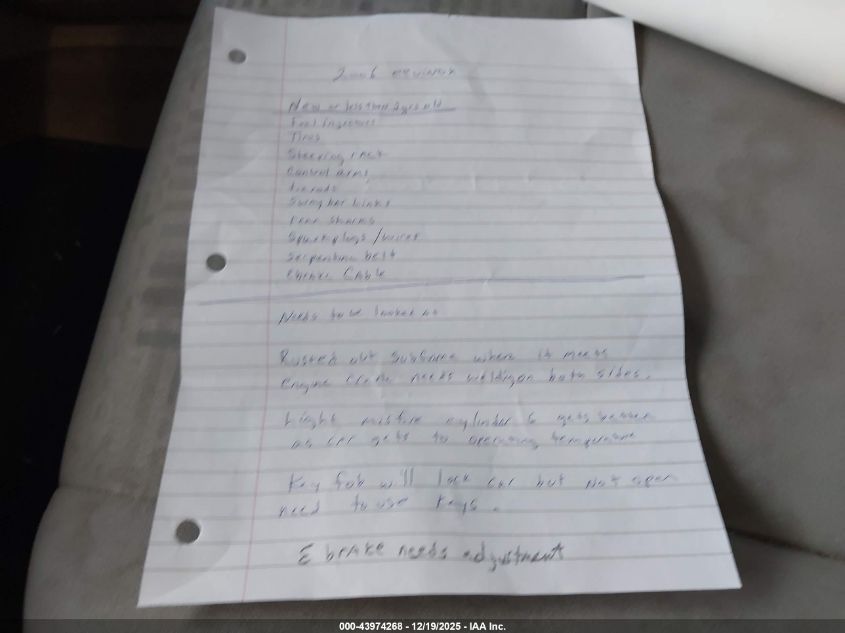 2006 equinox
New or less than 2 yrs old
Fuel injectors
Tires
Steering rack
Control arms
Sway bar links
rear shocks
Sparkplugs / wires
Serpentine belt
Cable
Needs to be looked at
Rusted out subframe where it meets
engine needs welding on both sides.
Light misfire cylinder 6 gets better
as car gets to operating temperature
Key fob will lock car but not open
need to use keys.
E brake needs adjustment
000-43974268 - 12/19/2025 - IAA Inc.